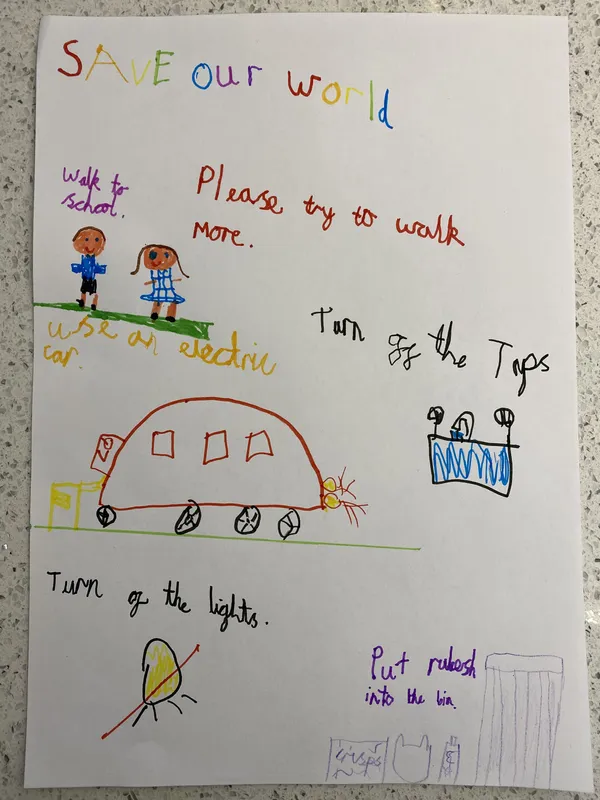 SAVE our world
Walk to
school.
Please try to walk
more.
use an electric
car.
Turn off the Taps
Turn of the lights.
Put rubesh
into the bin.
crisps